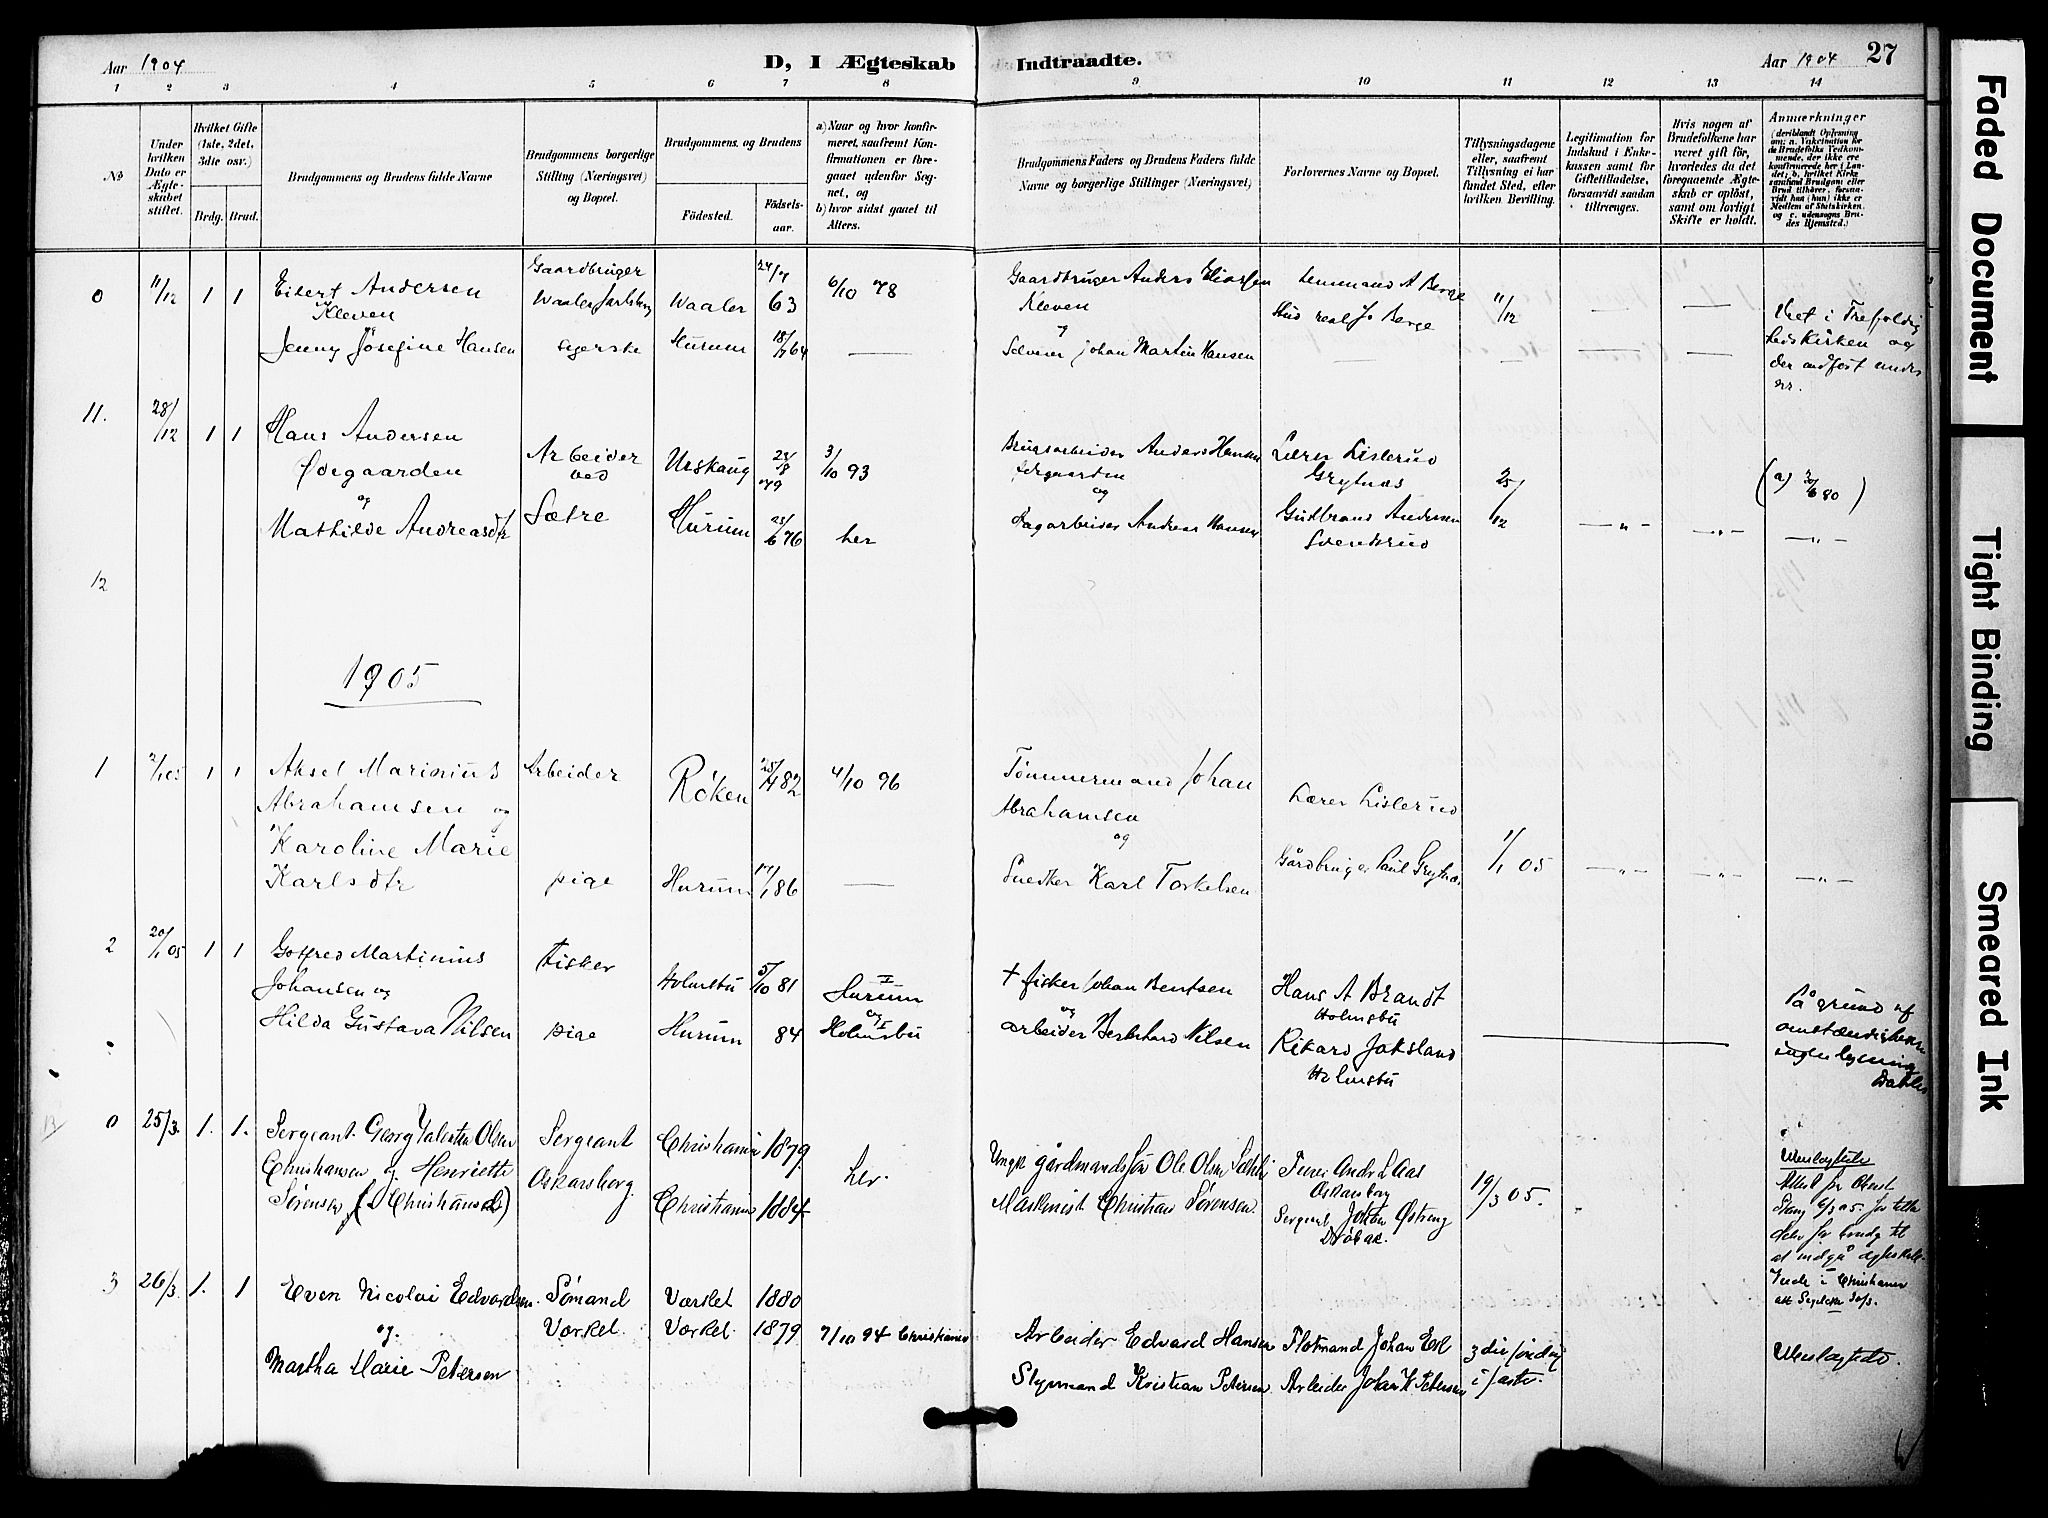 Aar 1904
D, I Ægteskab
Indtraadte.
Aar 1904
27
1 2 3 4 5 6 7 8 9 10 11 12 13 14
No
Under hvilken Dato er Ægteskabet stiftet.
Hvilket Gifte (1ste, 2det, 3die osv.)
Brdg. Brud.
Brudgommens og Brudens fulde Navne
Brudgommens borgerlige Stilling (Næringsvei) og Bopæl.
Brudgommens og Brudens
Födested.
Födselsaar.
a) Naar og hvor konfirmeret, saafremt Konfirmationen er foregaaet udenfor Sognet, og
b) hvor sidst gaaet til Alters.
Brudgommens Faders og Brudens Faders fulde Navne og borgerlige Stillinger (Næringsvei)
Forlovernes Navne og Bopæl.
Tillysningsdagene eller, saafremt Tillysning ei har fundet Sted, efter hvilken Bevilling.
Legitimation for Indskud i Enkekassen samt for Giftetilladelse, forsaavidt saadan tiltrænges.
Hvis nogen af Brudefolkene har været gift för, hvorledes da det foregaaende Ægteskab er oplöst, samt om lovligt Skifte er holdt.
Anmærkninger
(deriblandt Oplysning om: a. Vakcination for de Brudefolks Vedkommende, der ikke ere konfirmerede her i Landet; b. hvilket Kirkesamfund Brudgom eller Brud tilhörer, forsaavidt han (hun) ikke er Medlem af Statskirken, og c. udensogns Brudes Hjemsted.)
0 11/12 1 1 Eilert Andersen
Kleven
Gaardbruger
Waaler Jarlsberg
Waaler
24/7 63
6/10 78
Gaardbruger Anders Eliassen
Kleven
og
Lensmand A Berge
Stud real J. Berge
11/12
Viet i Trefoldighedskirken og
der
Jenny Josefine Hansen
Hurum
18/7 64
Johan Martin Hansen
11. 28/12 1 1 Hans Andersen
Ødegaarden
og
Arbeider
ved
Sætre
Urskaug
79
3/10 93
Brugsarbeider Anders Hansen
Ødegaarden
og
Lærer Lislerud
Grytnæs
25/12
(a) 3/6 80)
Mathilde Andreasdtr
Hurum
25/6 76
her
Dagarbeider Andreas Hansen
Gudbrand Andersen
12
1905
1 2/1 05 1 1 Aksel Marinius
Abrahamsen og
Karoline Marie
Karlsdtr
Arbeider
pige
Röken
Hurum
25/4 82
17/1 86
4/10 96
Tömmermand Johan
Abrahamsen
og
Snedker Karl Torkelsen
Lærer Lislerud
Gårdbruger Paul Grytnæs
1/1 05
2 20/1 05 1 1 Gotfred Martinius
Johansen og
Hilda Gustava Nilsen
Fisker
pige
Holmsbu
Hurum
5/10 81
84
Hurum
og
Holmsbu
† fisker Johan Bentsen
og
arbeider Berhard Nilsen
Hans A Brandt
Holmsbu
Rikard Jaksland
Holmsbu
På grund af
omstændigheder
ingen lysning
0 25/3. 1. 1. Sergeant Georg Valentin Olsen
Christiansen og Henriette
Sørensen (D Christiansen)
Sergeant
Oskarsborg.
Christiania
Christiania
1879.
1884
her.
Ole Olsen
Maskinist Christian Sørensen.
Andr L Aas
Oskarsborg
Sergeant Johan Østeng
Drøbak.
19/3 05.
3 26/3. 1. 1 Even Nicolai Edvardsen.
og.
Martha Marie Petersen
Sømand
Værket.
Værket
Værket.
1880
1879
7/10 94 Christiania
Arbeider Edvard Hansen
Styrmand Kristian Petersen.
Flotmand Johan Eek
Arbeider Johan K Petersen
3die søndag
i faste.
Faded Document
Tight Binding
Smeared Ink